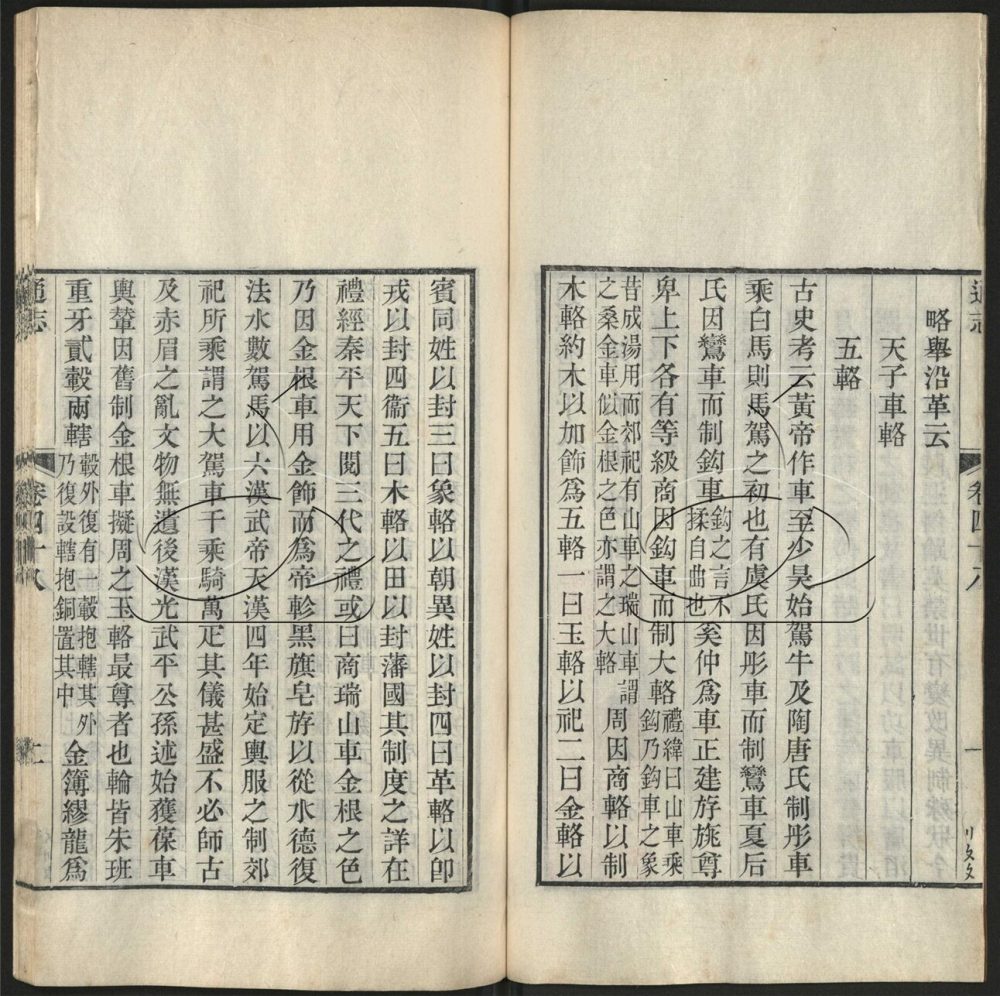 略舉沿革云
天子車輅
五輅
古史考云黃帝作車至少昊始駕牛及陶唐氏制彤車
乘白馬則馬駕之初也有虞氏因彤車而制鸞車夏后
氏因鸞車而制鈎車鈎之言不揉自曲也奚仲爲車正建斿旐尊
卑上下各有等級商因鈎車而制大輅禮緯曰山車乘鈎乃鈎車之象
昔成湯用而郊祀有山車之瑞山車謂之桑金車似金根之色亦謂之大輅周因商輅以制
木輅約木以加飾爲五輅一曰玉輅以祀二曰金輅以
通志
卷四十八
一
賓同姓以封三曰象輅以朝異姓以封四曰革輅以卽
戎以封四衞五曰木輅以田以封藩國其制度之詳在
禮經秦平天下閱三代之禮或曰商瑞山車金根之色
乃因金根車用金飾而爲帝軫黑旗皂斿以從水德復
法水數駕馬以六漢武帝天漢四年始定輿服之制郊
祀所乘謂之大駕車千乘騎萬疋其儀甚盛不必師古
及赤眉之亂文物無遺後漢光武平公孫述始獲葆車
輿輦因舊制金根車擬周之玉輅最尊者也輪皆朱班
重牙貳轂兩轄轂外復有一轂抱轄其外乃復設轄抱銅置其中金簿繆龍爲
通志
卷四十八